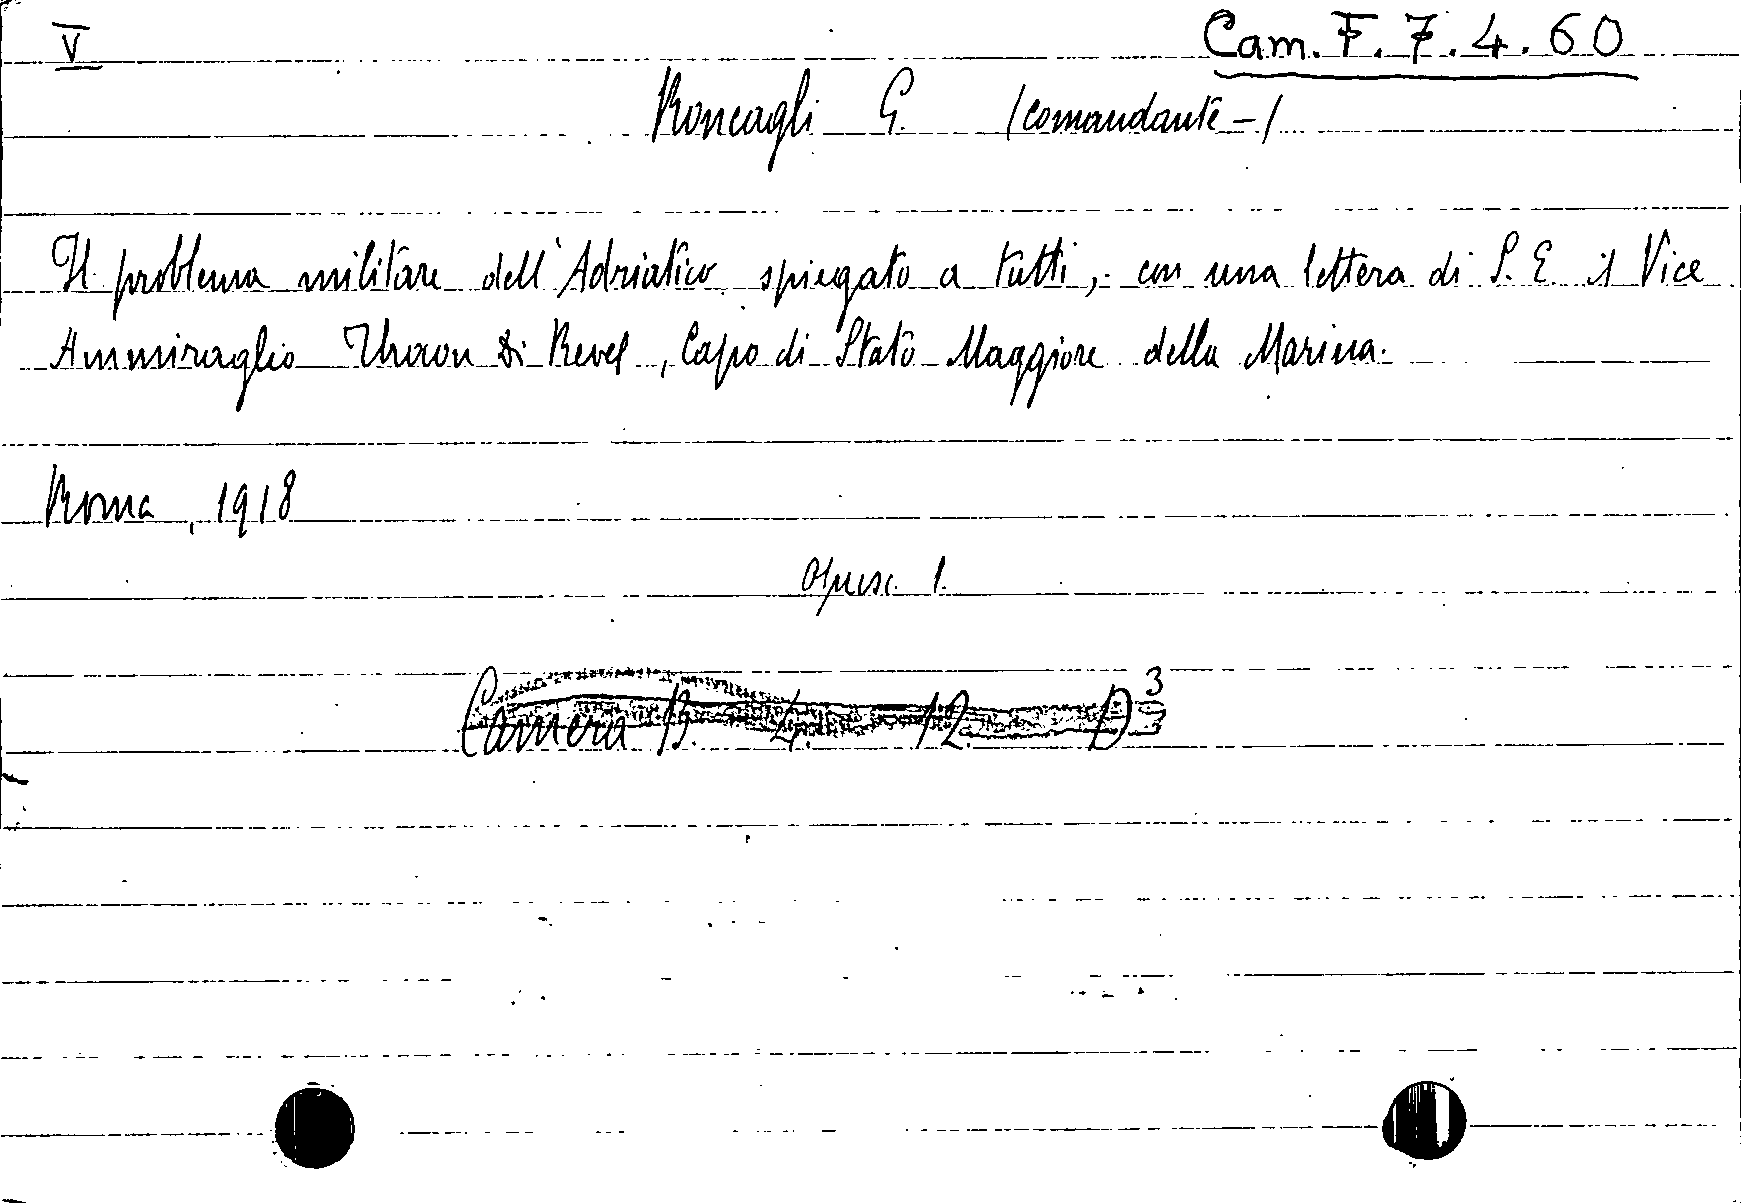 V
Cam. F. 7. 4. 60
Roncagli G. (comandante -)
Il problema militare dell'Adriatico spiegato a tutti, con una lettera di S. E. il Vice
Ammiraglio Thaon Di Revel, Capo di Stato Maggiore della Marina.
Roma, 1918
Opusc. 1.
Camera B. 4. 12. D 3